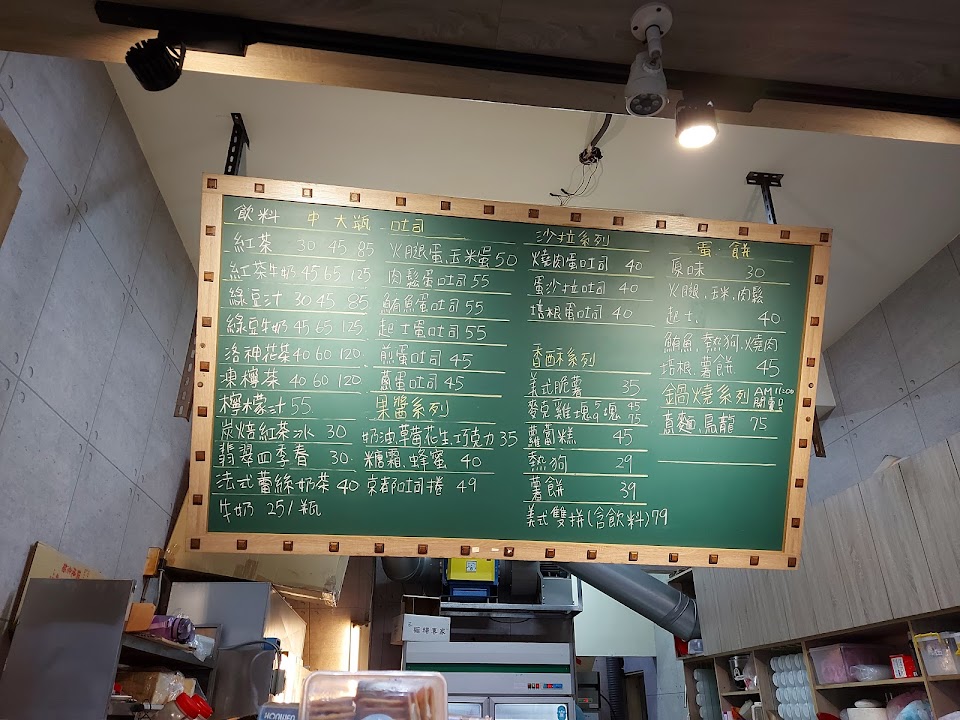 飲料 中 大 瓶
紅茶 30 45 85
紅茶牛奶 45 65 125
綠豆汁 30 45 85
綠豆牛奶 45 65 125
洛神花茶 40 60 120
凍檸茶 40 60 120
檸檬汁 55
炭焙紅茶冰 30
翡翠四季春 30
法式蕾絲奶茶 40
牛奶 25/瓶
吐司
火腿蛋、玉米蛋 50
肉鬆蛋吐司 55
鮪魚蛋吐司 55
起士蛋吐司 55
煎蛋吐司 45
蔥蛋吐司 45
果醬系列
奶油.草莓.花生.巧克力 35
糖霜.蜂蜜 40
京都吐司捲 49
沙拉系列
燒肉蛋吐司 40
蛋沙拉吐司 40
培根蛋吐司 40
香酥系列
美式脆薯 35
麥克雞塊 5塊 45 9塊 75
蘿蔔糕 45
熱狗 29
薯餅 39
美式雙拼(含飲料) 79
蛋餅
原味 30
火腿.玉米.肉鬆
起士. 40
鮪魚.熱狗.燒肉
培根.薯餅. 45
鍋燒系列 AM 11:00 開賣
意麵.烏龍 75